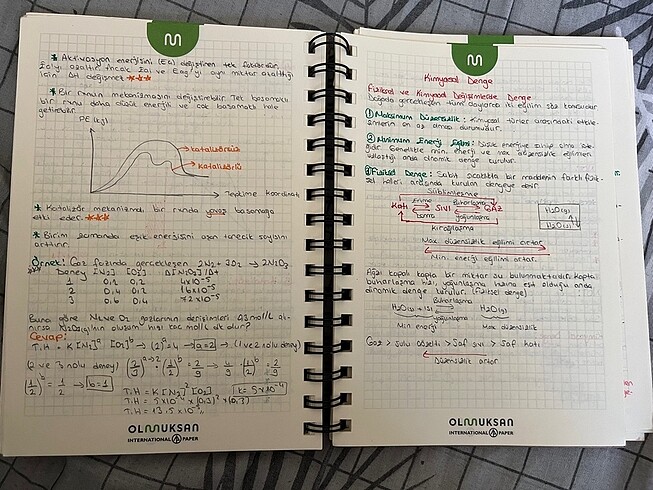 * Aktivasyon enerjisini (Ea) değiştiren tek faktördür,
Ea'yı azaltır ancak Eai ve Eag'yi aynı miktar azalttığı
için ΔH değişmez ***
* Bir rxnun mekanizmasını değiştirebilir. Tek basamaklı
bir rxnu daha düşük enerjili ve çok basamaklı hale
getirebilir.
PE (kj)
katalizörsüz
katalizörlü
Tepkime koordinatı
* Katalizör mekanizmalı bir rxnda yavaş basamağa
etki eder. ***
* Birim zamanda eşik enerjisini aşan tanecik sayısını
arttırır.
Örnek: Gaz fazında gerçekleşen 2N2 + 3O2 → 2N2O3
Deney [N2] [O2] Δ[N2O3]/Δt
1 0,2 0,2 4x10-5
2 0,4 0,2 16x10-5
3 0,6 0,4 72x10-5
Buna göre N2 ve O2 gazlarının derişimleri 0,3 mol/L alı-
nırsa N2O3'ün oluşum hızı kaç mol/L dk olur?
Cevap:
T.H = K [N2]a [O2]b → (2)a = 4 → a=2 → (1 ve 2 nolu deney)
(2 ve 3 nolu deney) (2/3)a→2 (1/2)b = 2/9 → 4/9 (1/2)b = 2/9
(1/2)b = 1/2 → b=1
T.H = K [N2]2 [O2] k = 5x10-4
T.H = 5x10-4 x (0,3)2 x (0,3)
T.H = 13,5 x 10-6
OLMUKSAN
INTERNATIONAL PAPER
Kimyasal Denge
Fiziksel ve Kimyasal Değişimlerde Denge
Doğada gerçekleşen tüm olaylarda iki eğilim söz konusudur
① Maksimum Düzensizlik: Kimyasal türler arasındaki etkile-
şimlerin en az olma durumudur.
② Minimum Enerji Eğilimi: Düşük enerjiye sahip olma iste-
ğidir. Genellikle min. enerji ve max düzensizlik eğilimleri
uzlaştığı anda dinamik denge kurulur.
Fiziksel Denge: Sabit sıcaklıkta bir maddenin farklı fizik-
sel halleri arasında kurulan dengeye denir.
Süblimleşme
Katı Erime Sıvı Buharlaşma GAZ
donma yoğunlaşma
Kırağılaşma
H2O(g)
H2O(s)
Max. düzensizlik eğilimi artar
Min. enerji eğilimi artar.
Ağzı kapalı kapta bir miktar su bulunmaktadır. Kapta
buharlaşma hızı, yoğunlaşma hızına eşit olduğu anda
dinamik denge kurulur. (Fiziksel denge)
H2O(s) + ısı Buharlaşma H2O(g)
yoğunlaşma
Min enerji Max düzensizlik
Gaz > sulu çözelti > Saf sıvı > Saf katı
Düzensizlik artar
OLMUKSAN
INTERNATIONAL PAPER